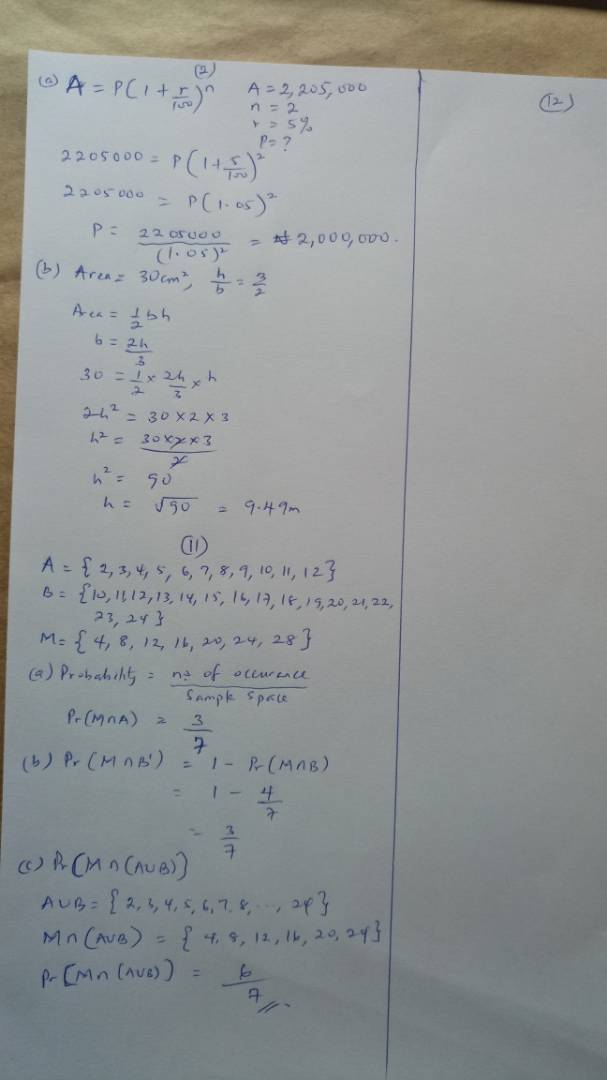 (2)
(a) A = P(1 + r/100)^n A = 2,205,000
n = 2
r = 5%
P = ?
2205000 = P(1 + 5/100)²
2205000 = P(1.05)²
P = 2205000/(1.05)² = ₦2,000,000.
(b) Area = 30cm², h/b = 3/2
Area = 1/2 bh
b = 2h/3
30 = 1/2 × 2h/3 × h
2h² = 30 × 2 × 3
h² = 30×2×3/2
h² = 90
h = √90 = 9.49m
(11)
A = {2,3,4,5,6,7,8,9,10,11,12}
B = {10,11,12,13,14,15,16,17,18,19,20,21,22,
23,24}
M = {4,8,12,16,20,24,28}
(a) Probability = no of occurence/Sample Space
Pr(M∩A) = 3/7
(b) Pr(M∩B') = 1 - Pr(M∩B)
= 1 - 4/7
= 3/7
(c) Pr[M∩(A∪B)]
A∪B = {2,3,4,5,6,7,8,...,24}
M∩(A∪B) = {4,8,12,16,20,24}
Pr[M∩(A∪B)] = 6/7
(12)